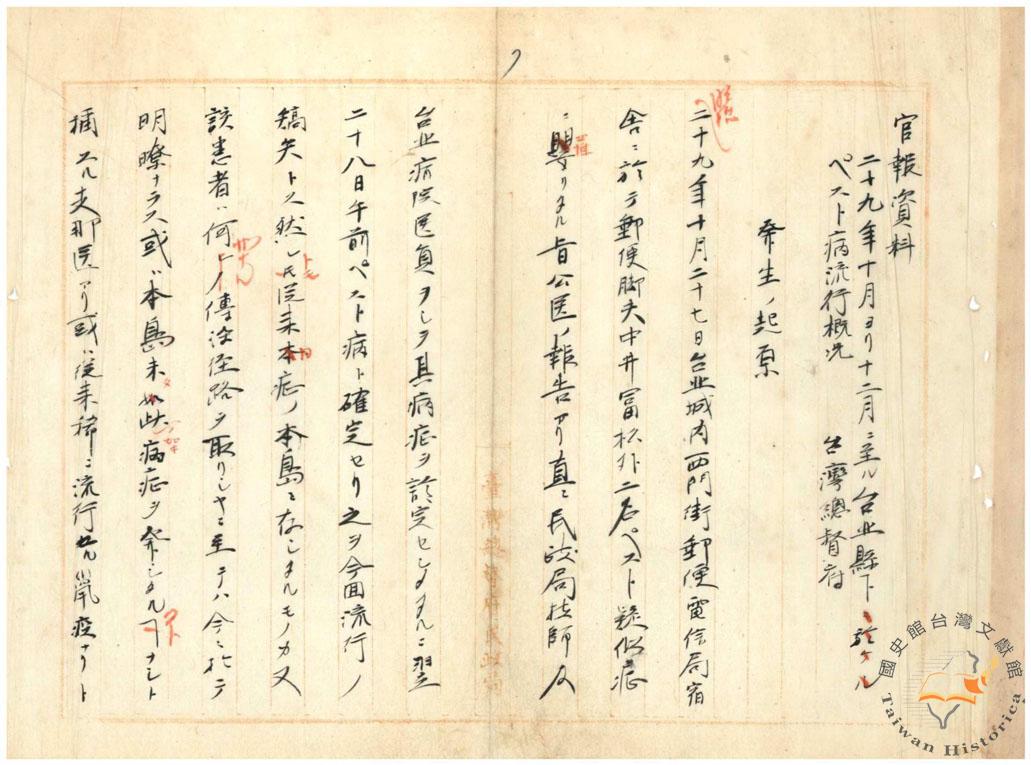 官報資料
二十九年十月ヨリ十二月ニ至ル台北縣下ニ於ケル
ペスト病流行概況
台灣總督府
発生ノ起原
二十九年十月二十七日台北城内西門街郵便電信局宿
舎ニ於テ郵便脚夫中井富松外二名ペスト疑似症
ニ罹リタル旨公医ノ報告アリ直ニ民政局技師及
台北病院医員ヲシテ其病症ヲ診定セシメタルニ翌
二十八日午前ペスト病ト確定セリ之ヲ今回流行ノ
嚆矢トス然レトモ従来本症ノ本島ニ存シタルモノカ又
該患者ハ何レノ傳染径路ヲ取リシヤニ至テハ今ニ於テ
明瞭ナラス或ハ本島未タ如此病症ヲ発シタルコトナシト
唱フル支那医アリ或ハ従来稀ニ流行セル鼠疫ナリト
臺灣總督府民政局
國史館台灣文獻館
Taiwan Historica